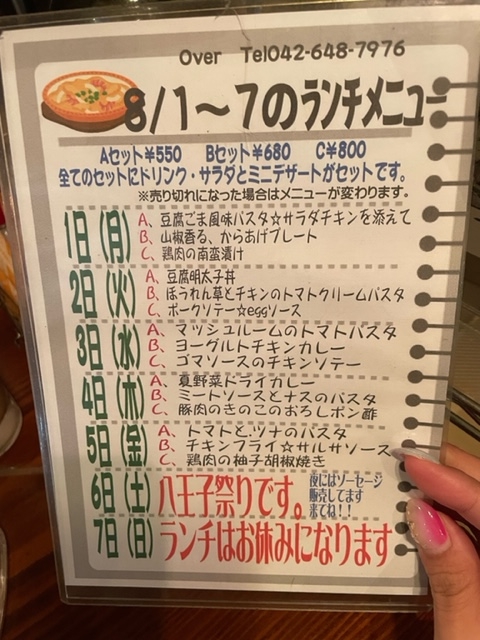 Over Tel042-648-7976
8/1～7のランチメニュー
Aセット¥550 Bセット¥680 C¥800
全てのセットにドリンク・サラダとミニデザートがセットです。
※売り切れになった場合はメニューが変わります。
1日(月)
A、豆腐ごま風味パスタ☆サラダチキンを添えて
B、山椒香る、からあげプレート
C、鶏肉の南蛮漬け
2日(火)
A、豆腐明太子丼
B、ほうれん草とチキンのトマトクリームパスタ
C、ポークソテー☆eggソース
3日(水)
A、マッシュルームのトマトパスタ
B、ヨーグルトチキンカレー
C、ゴマソースのチキンソテー
4日(木)
A、夏野菜ドライカレー
B、ミートソースとナスのパスタ
C、豚肉のきのこのおろしポン酢
5日(金)
A、トマトとツナのパスタ
B、チキンフライ☆サルサソース
C、鶏肉の柚子胡椒焼き
6日(土) 八王子祭りです。
夜にはソーセージ
販売してます
来てね！！
7日(日) ランチはお休みになります